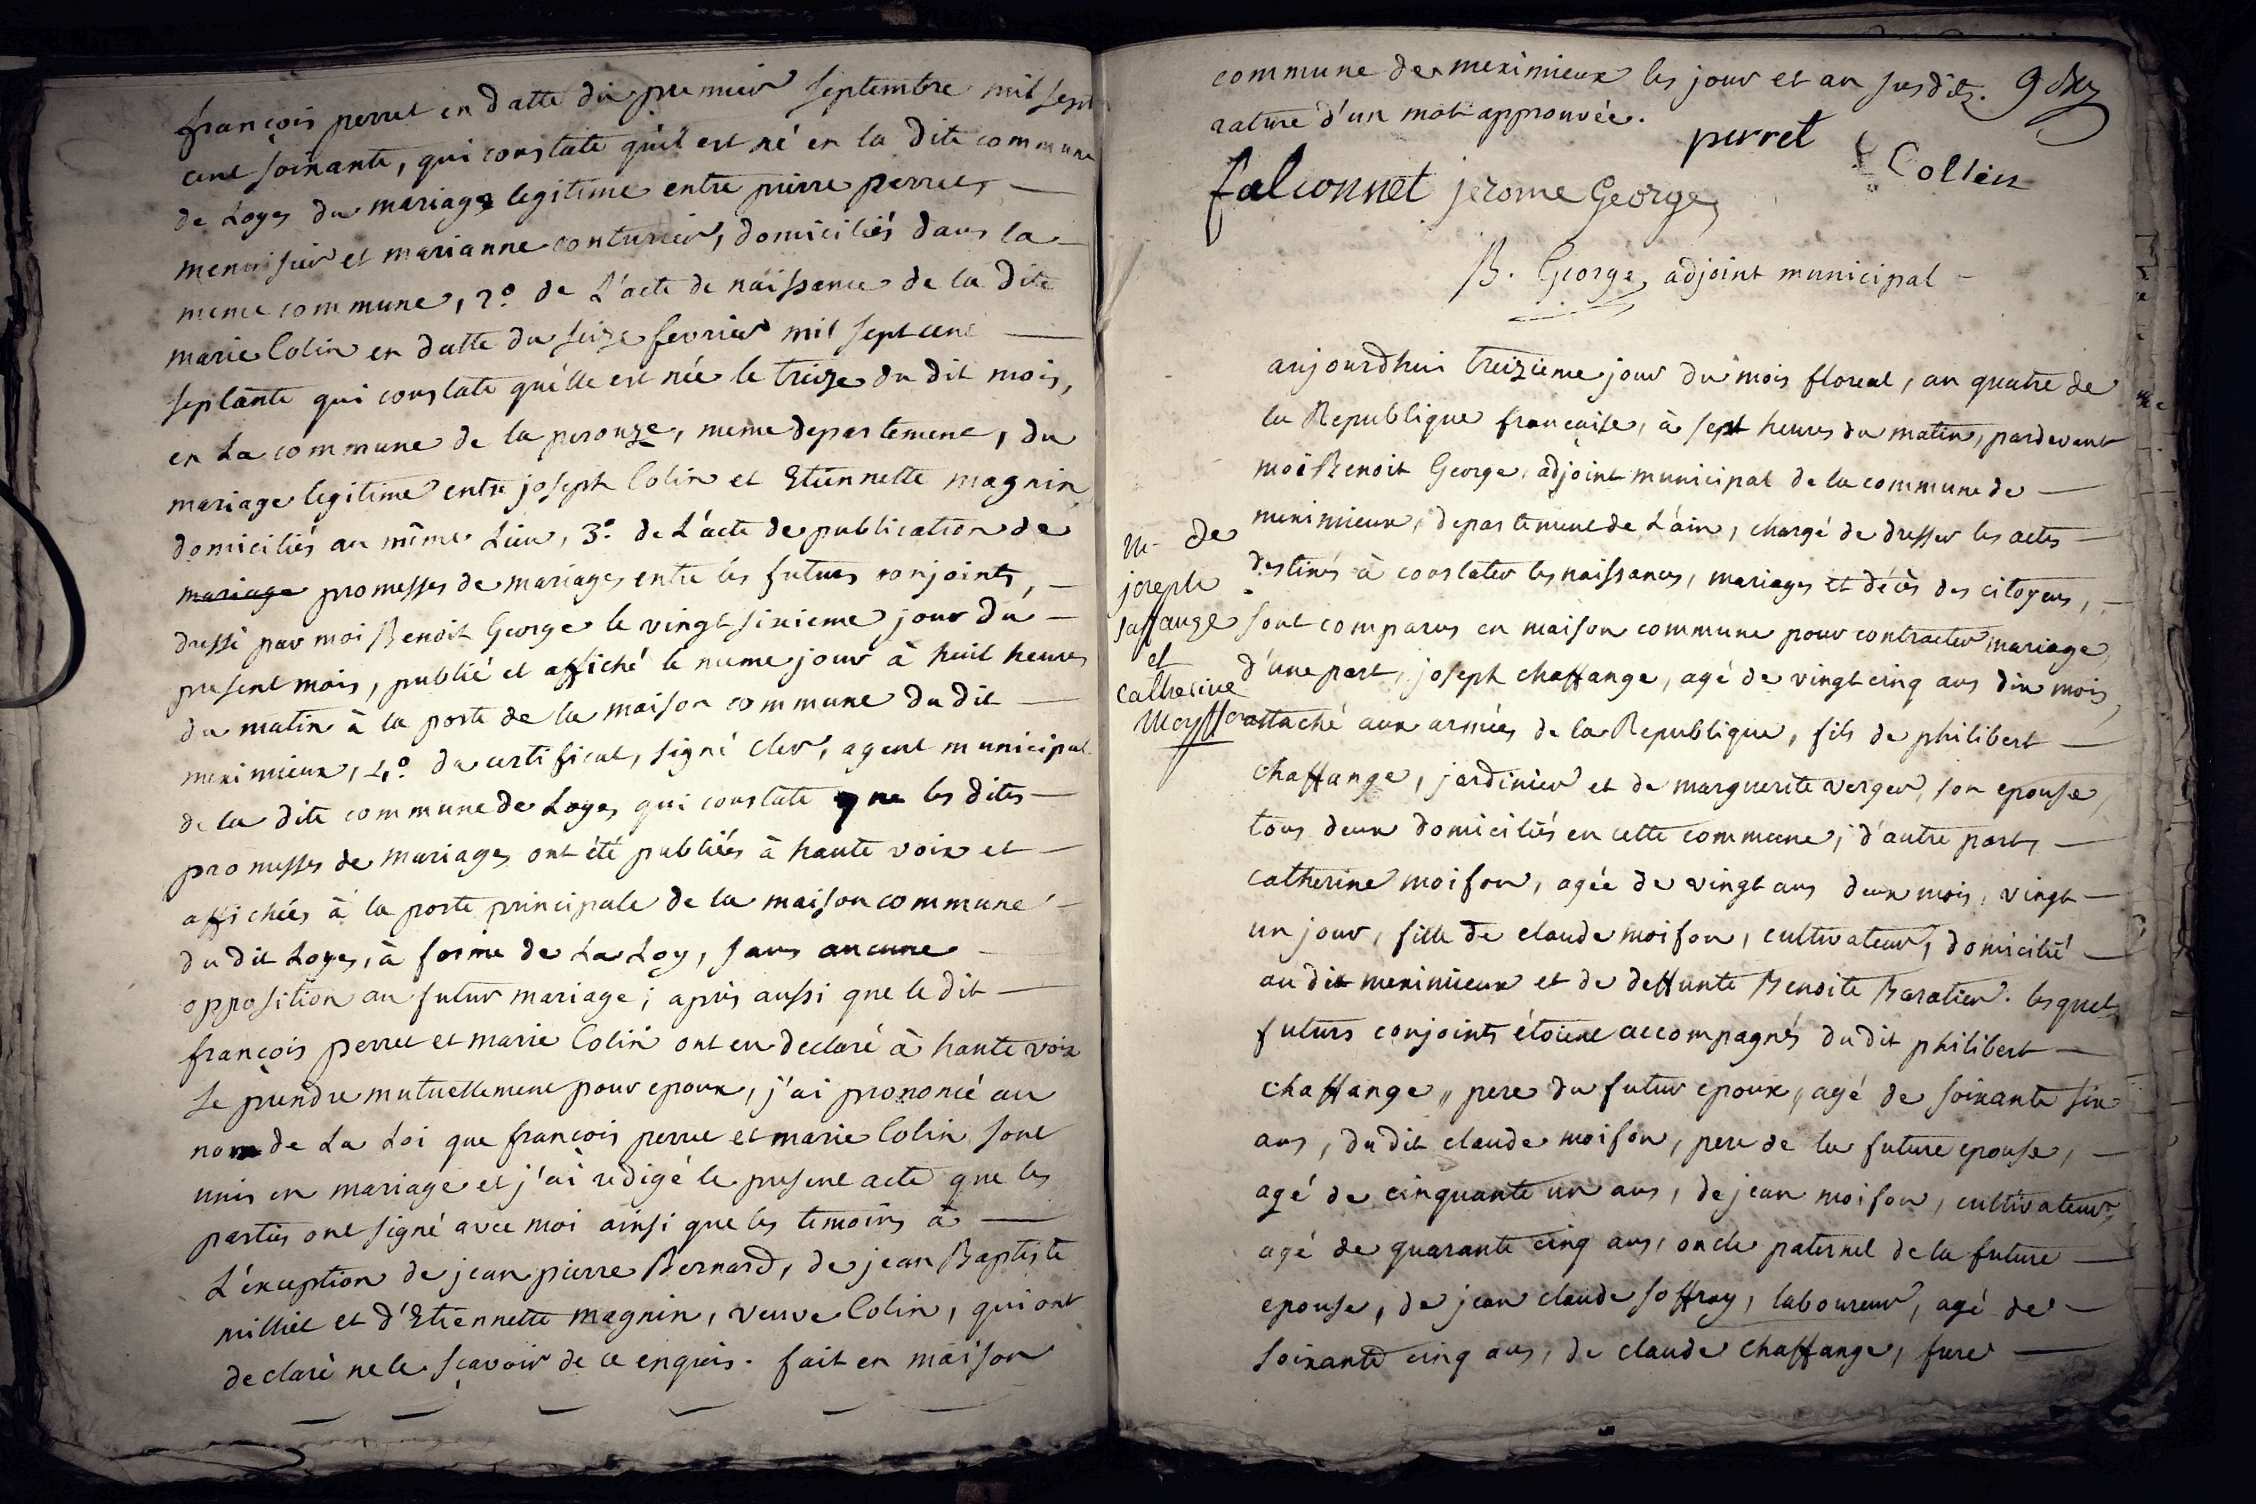 françois perret en datte du premier septembre mil sept
cent soixante, qui constate qu'il est né en la dite commune
de Loyes du mariage legitime entre pierre perret,
menuisier et marianne couturier, domiciliés dans la
meme commune, 2.° de L'acte de naissance de la dite
marie Colin en datte du seize fevrier mil sept cent
septante qui constate qu'elle est née le treize du dit mois,
en La commune de la perouze, meme departement, du
mariage legitime entre joseph Colin et Etiennette magnin
domiciliés au même Lieu, 3.° de L'acte de publication de
mariage promesses de mariages entre les futurs conjoints,
dressé par moi Benoit George le vingt sixieme jour du
present mois, publié et affiché le meme jour à huit heures
du matin à la porte de la maison commune du dit
meximieux, 4.° du certificat, signé Cler, agent municipal
de la dite commune de Loyes, qui constate que les dites
promesses de mariages ont été publiées à haute voix et
affichées à la porte principale de la maison commune
du dit Loyes, à forme de La Loy, sans aucune
opposition au futur mariage; après aussi que le dit
françois perret et marie Colin ont eu declaré à haute voix
se prendre mutuellement pour epoux, j'ai prononcé au
nom de La Loi que françois perret et marie Colin sont
unis en mariage et j'ai redigé le present acte que les
parties ont signé avec moi ainsi que les temoins à
L'exception de jean pierre Bernard, de jean Baptiste
milliet et d'Etiennette magnin, veuve Colin, qui ont
declaré ne le sçavoir de ce enquis. fait en maison
commune de meximieux les jour et an susdits.
rature d'un mot approuvée.
perret
Collin
falconnet jerome George
B. George, adjoint municipal
aujourdhui treizieme jour du mois floreal, an quatre de
la Republique française, à sept heures du matin, pardevant
moi Benoit George, adjoint municipal de la commune de
meximieux, departement de L'ain, chargé de dresser les actes
destinés à constater les naissances, mariages et décès des citoyens,
sont comparus en maison commune pour contracter mariage,
d'une part, joseph chaffange, agé de vingt cinq ans dix mois,
attaché aux armées de la Republique, fils de philibert
chaffange, jardinier et de marguerite verger, son epouse,
tous deux domiciliés en cette commune; d'autre part,
catherine moifon, agée de vingt ans deux mois, vingt
un jour, fille de claude moifon, cultivateur, domicilié
au dit meximieux et de deffunte Benoite Baratier. lesquels
futurs conjoints étoient accompagnés du dit philibert
chaffange, pere du futur epoux, agé de soixante six
ans, du dit claude moifon, pere de la future epouse,
agé de cinquante un ans, de jean moifon, cultivateur,
agé de quarante cinq ans, oncle paternel de la future
epouse, de jean claude soffray, laboureur, agé de
soixante cinq ans, de claude chaffange, frere
m. de
joseph
saffange
et
catherine